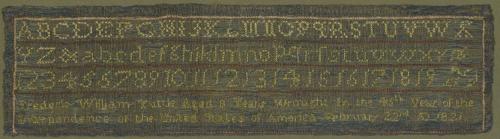 ABCDEFGHIJKLMNOPQRSTUVWX
YZ&abcdefghiklmnopqrstuvwxyz
12345678910111213141516171819
Frederic William Tuttle Aged 8 Years Wrought In the Year of the
Independence of the United States of America February 22nd AD 1821